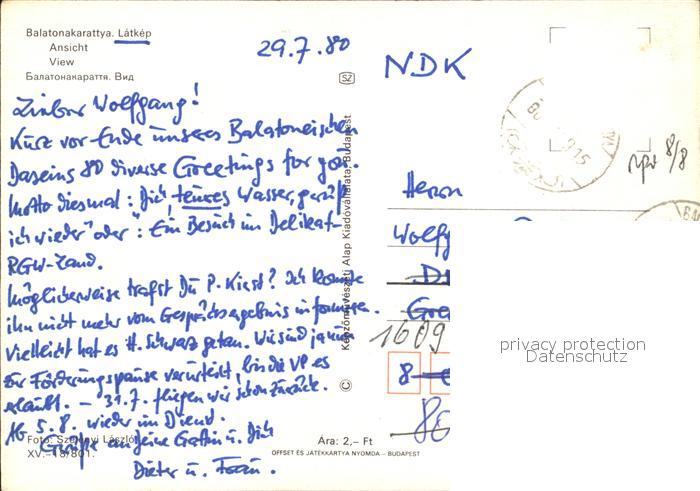 Balatonakarattya. Látkép
Ansicht
View
Балатонакараття. Вид
29.7.80
SZ
NDK
Lieber Wolfgang!
Kurz vor Ende unseres Balatoneischen
Daseins 80 diverse Greetings for you.
Motto diesmal: "Dich teures Wasser, grüß
ich wieder" oder: "Ein Besuch im Delikat-
RGW-Land.
Möglicherweise trafst Du P. Kiest? Ich konnte
ihn nicht mehr vom Gesprächsergebnis informieren.
Vielleicht hat es H. Schwarz getan. Wir sind ja nun
zur Förderungspause verurteilt, bis die VP es
erlaubt. – 31.7. fliegen wir schon zurück.
Ab 5.8. wieder im Dienst.
Grüße an Deine Gattin u. Dich
Dieter u. Frau.
Foto: Szelényi László
XV.-18/801.
Ára: 2,– Ft
OFFSET ÉS JÁTÉKKÁRTYA NYOMDA – BUDAPEST
© Képzőművészeti Alap Kiadóvállalata, Budapest
Herrn
Wolfg
1609
8
8/8
privacy protection
Datenschutz